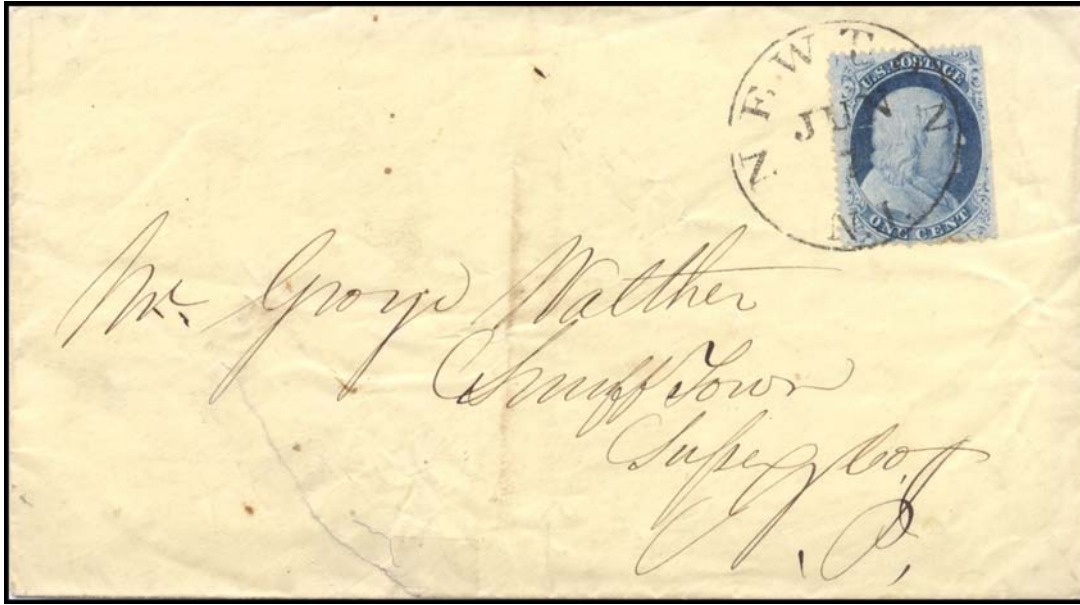 NEWTON
JUN
1
N.J.
U.S. POSTAGE
ONE CENT
Mr. George Walther
Snuff Town
Sussex Co.